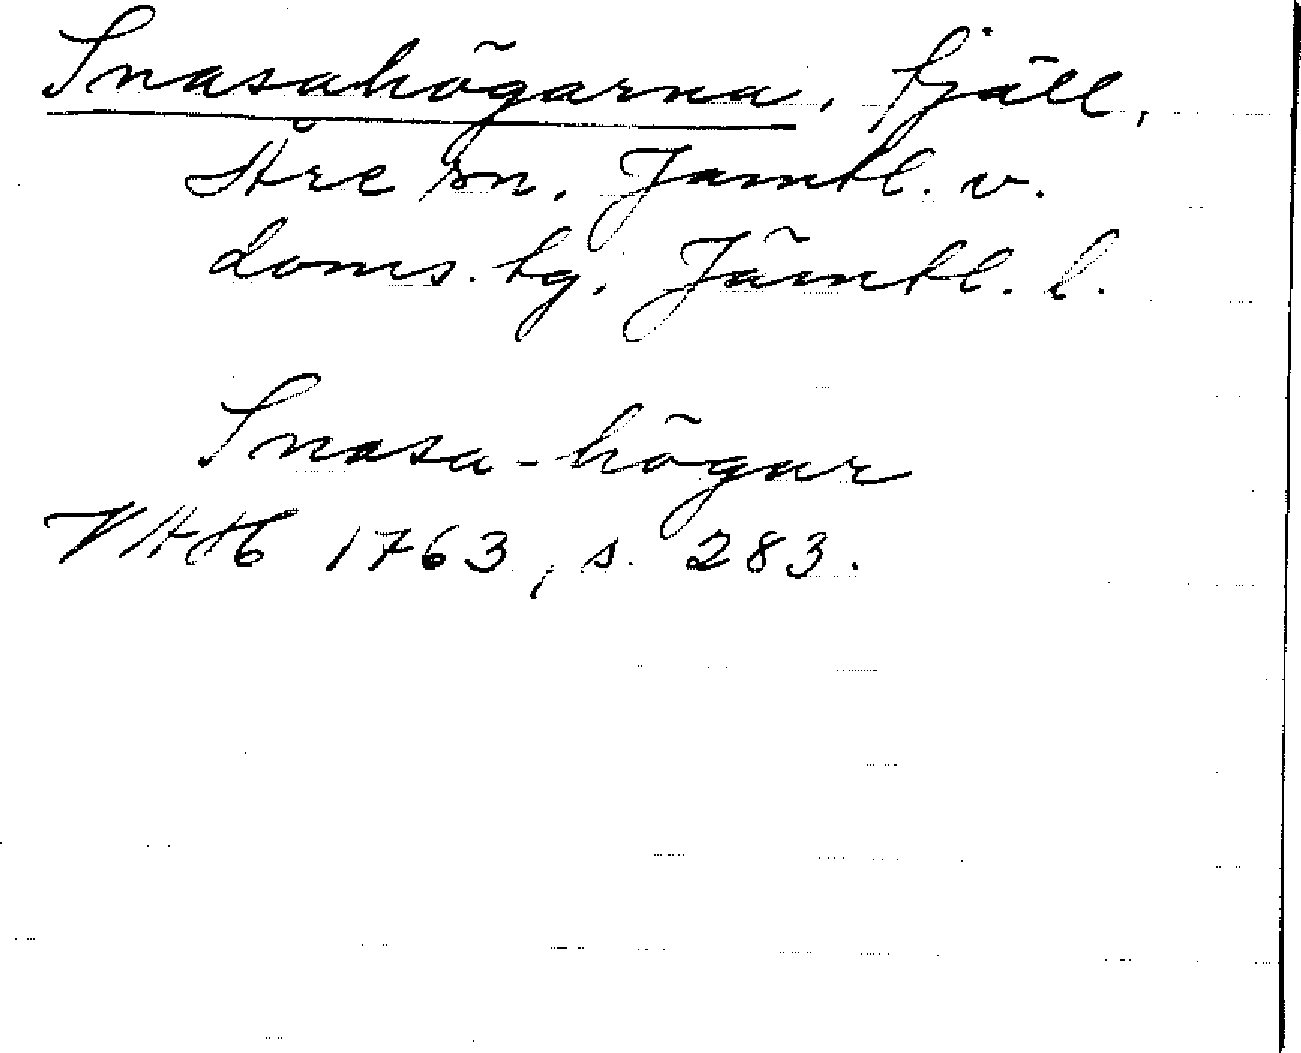 Snasahögarna, fjäll,
Åre sn. Jämtl. v.
doms. hg. Jämtl. l.
Snasa-högar
VAH 1763, s. 283.